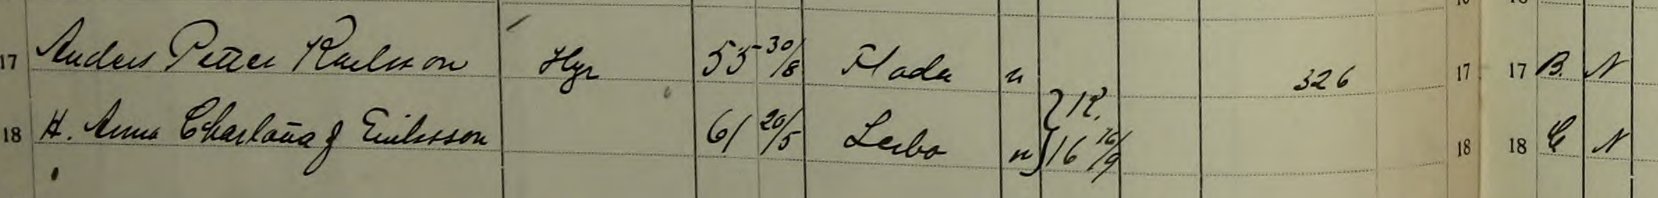 17 Anders Petter Karlsson Hyr 55 30/8 Floda n 326 17 17 B. N
18 H. Anna Charlotta f Emilsson 61 20/5 Lerbo n } 12. 16 16/9 18 18 C N